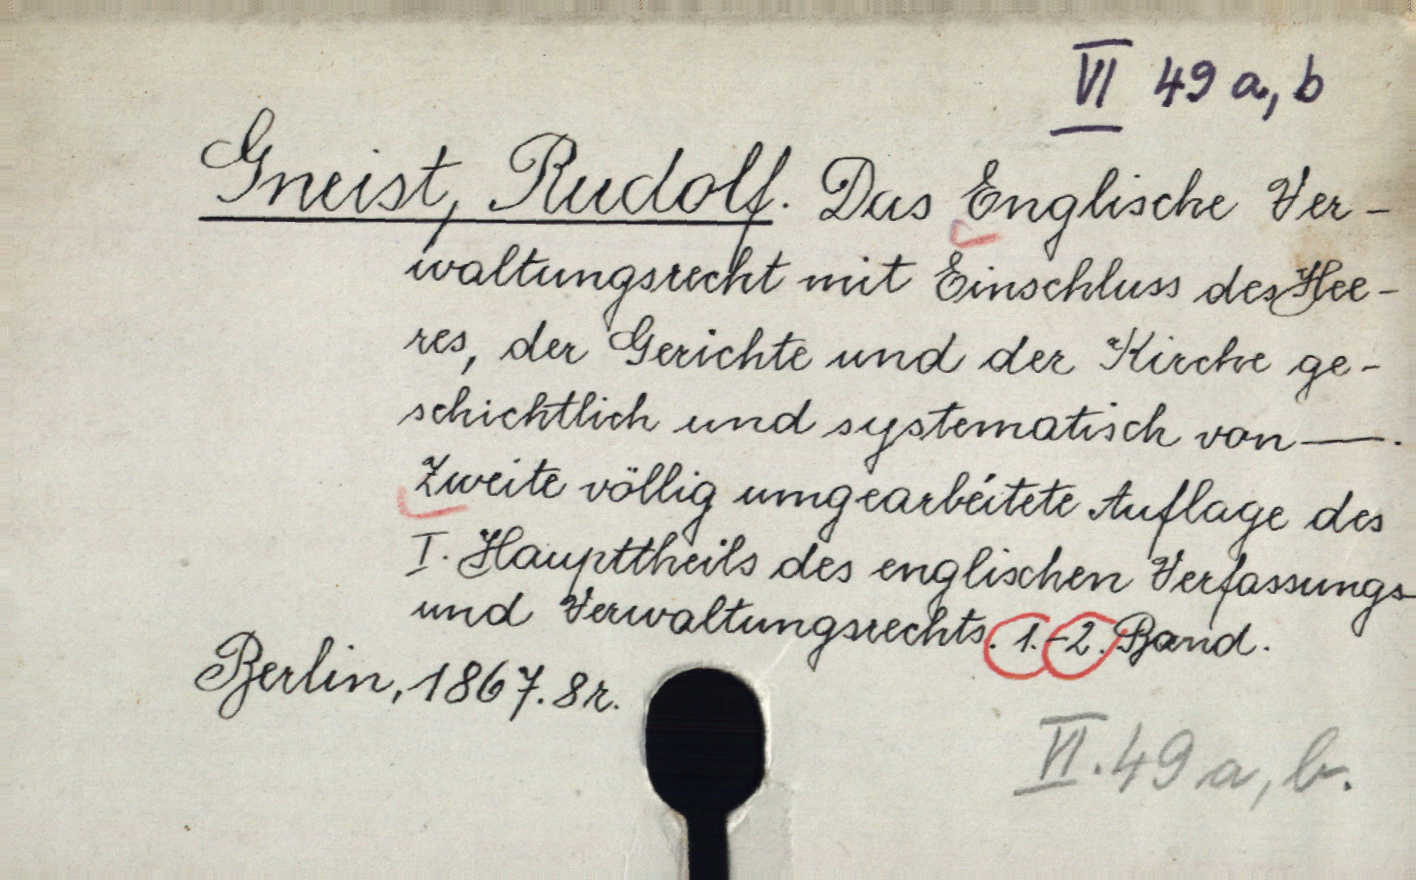 VI 49 a, b
Gneist, Rudolf. Das Englische Ver-
waltungsrecht mit Einschluss des Hee-
res, der Gerichte und der Kirche ge-
schichtlich und systematisch von —.
Zweite völlig umgearbeitete Auflage des
I. Haupttheils des englischen Verfassungs-
und Verwaltungsrechts. 1.-2. Band.
Berlin, 1867. 8r.
VI. 49 a, b.